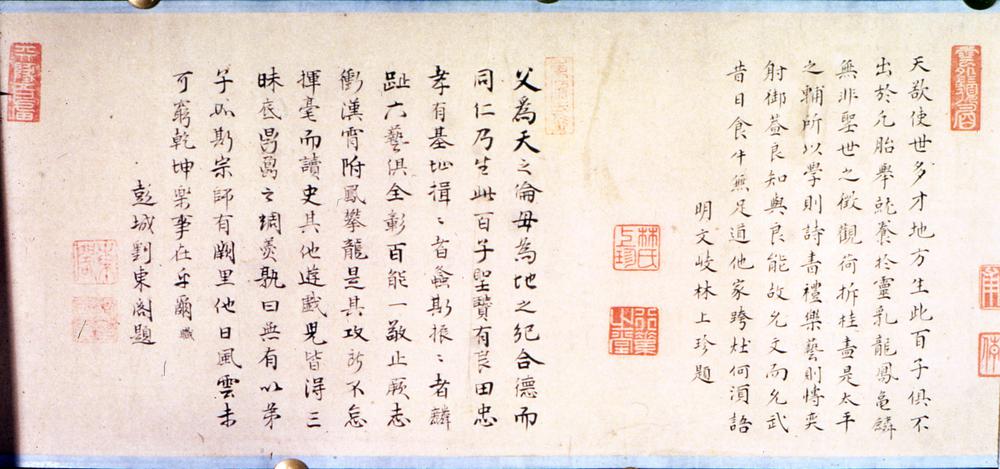 天欲使世多才地方生此百子俱不
出於凡胎舉毓養於靈乳龍鳳龜麟
無非聖世之徵觀荷折桂盡是太平
之輔所以學則詩書禮樂藝則博奕
射御蓋良知與良能故允文而允武
昔日食牛無足道他家跨灶何須語
明文岐林上珍題
林氏上珍
父為天之倫母為地之紀合德而
同仁乃生此百子聖贊有良田忠
孝有基址揖揖者螽斯振振者麟
趾六藝俱全彰百能一敬止厥志
衝漢霄附鳳攀龍是其攻苟不怠
揮毫而讀史其他遊戲兒皆得三
昧底曷為之調羹孰曰無有以弟
子如斯宗師有闕里他日風雲未
可窮乾坤樂事在乎爾
彭城劉東閣題